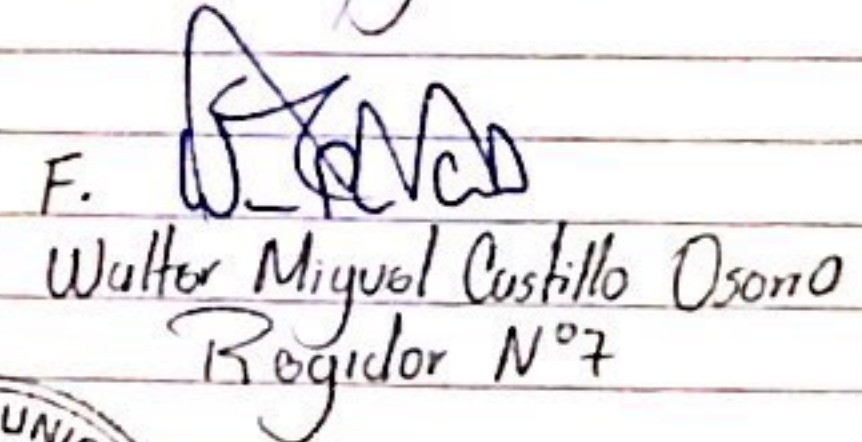 F.
Walter Miguel Castillo Osorio
Regidor N°7
UNIC